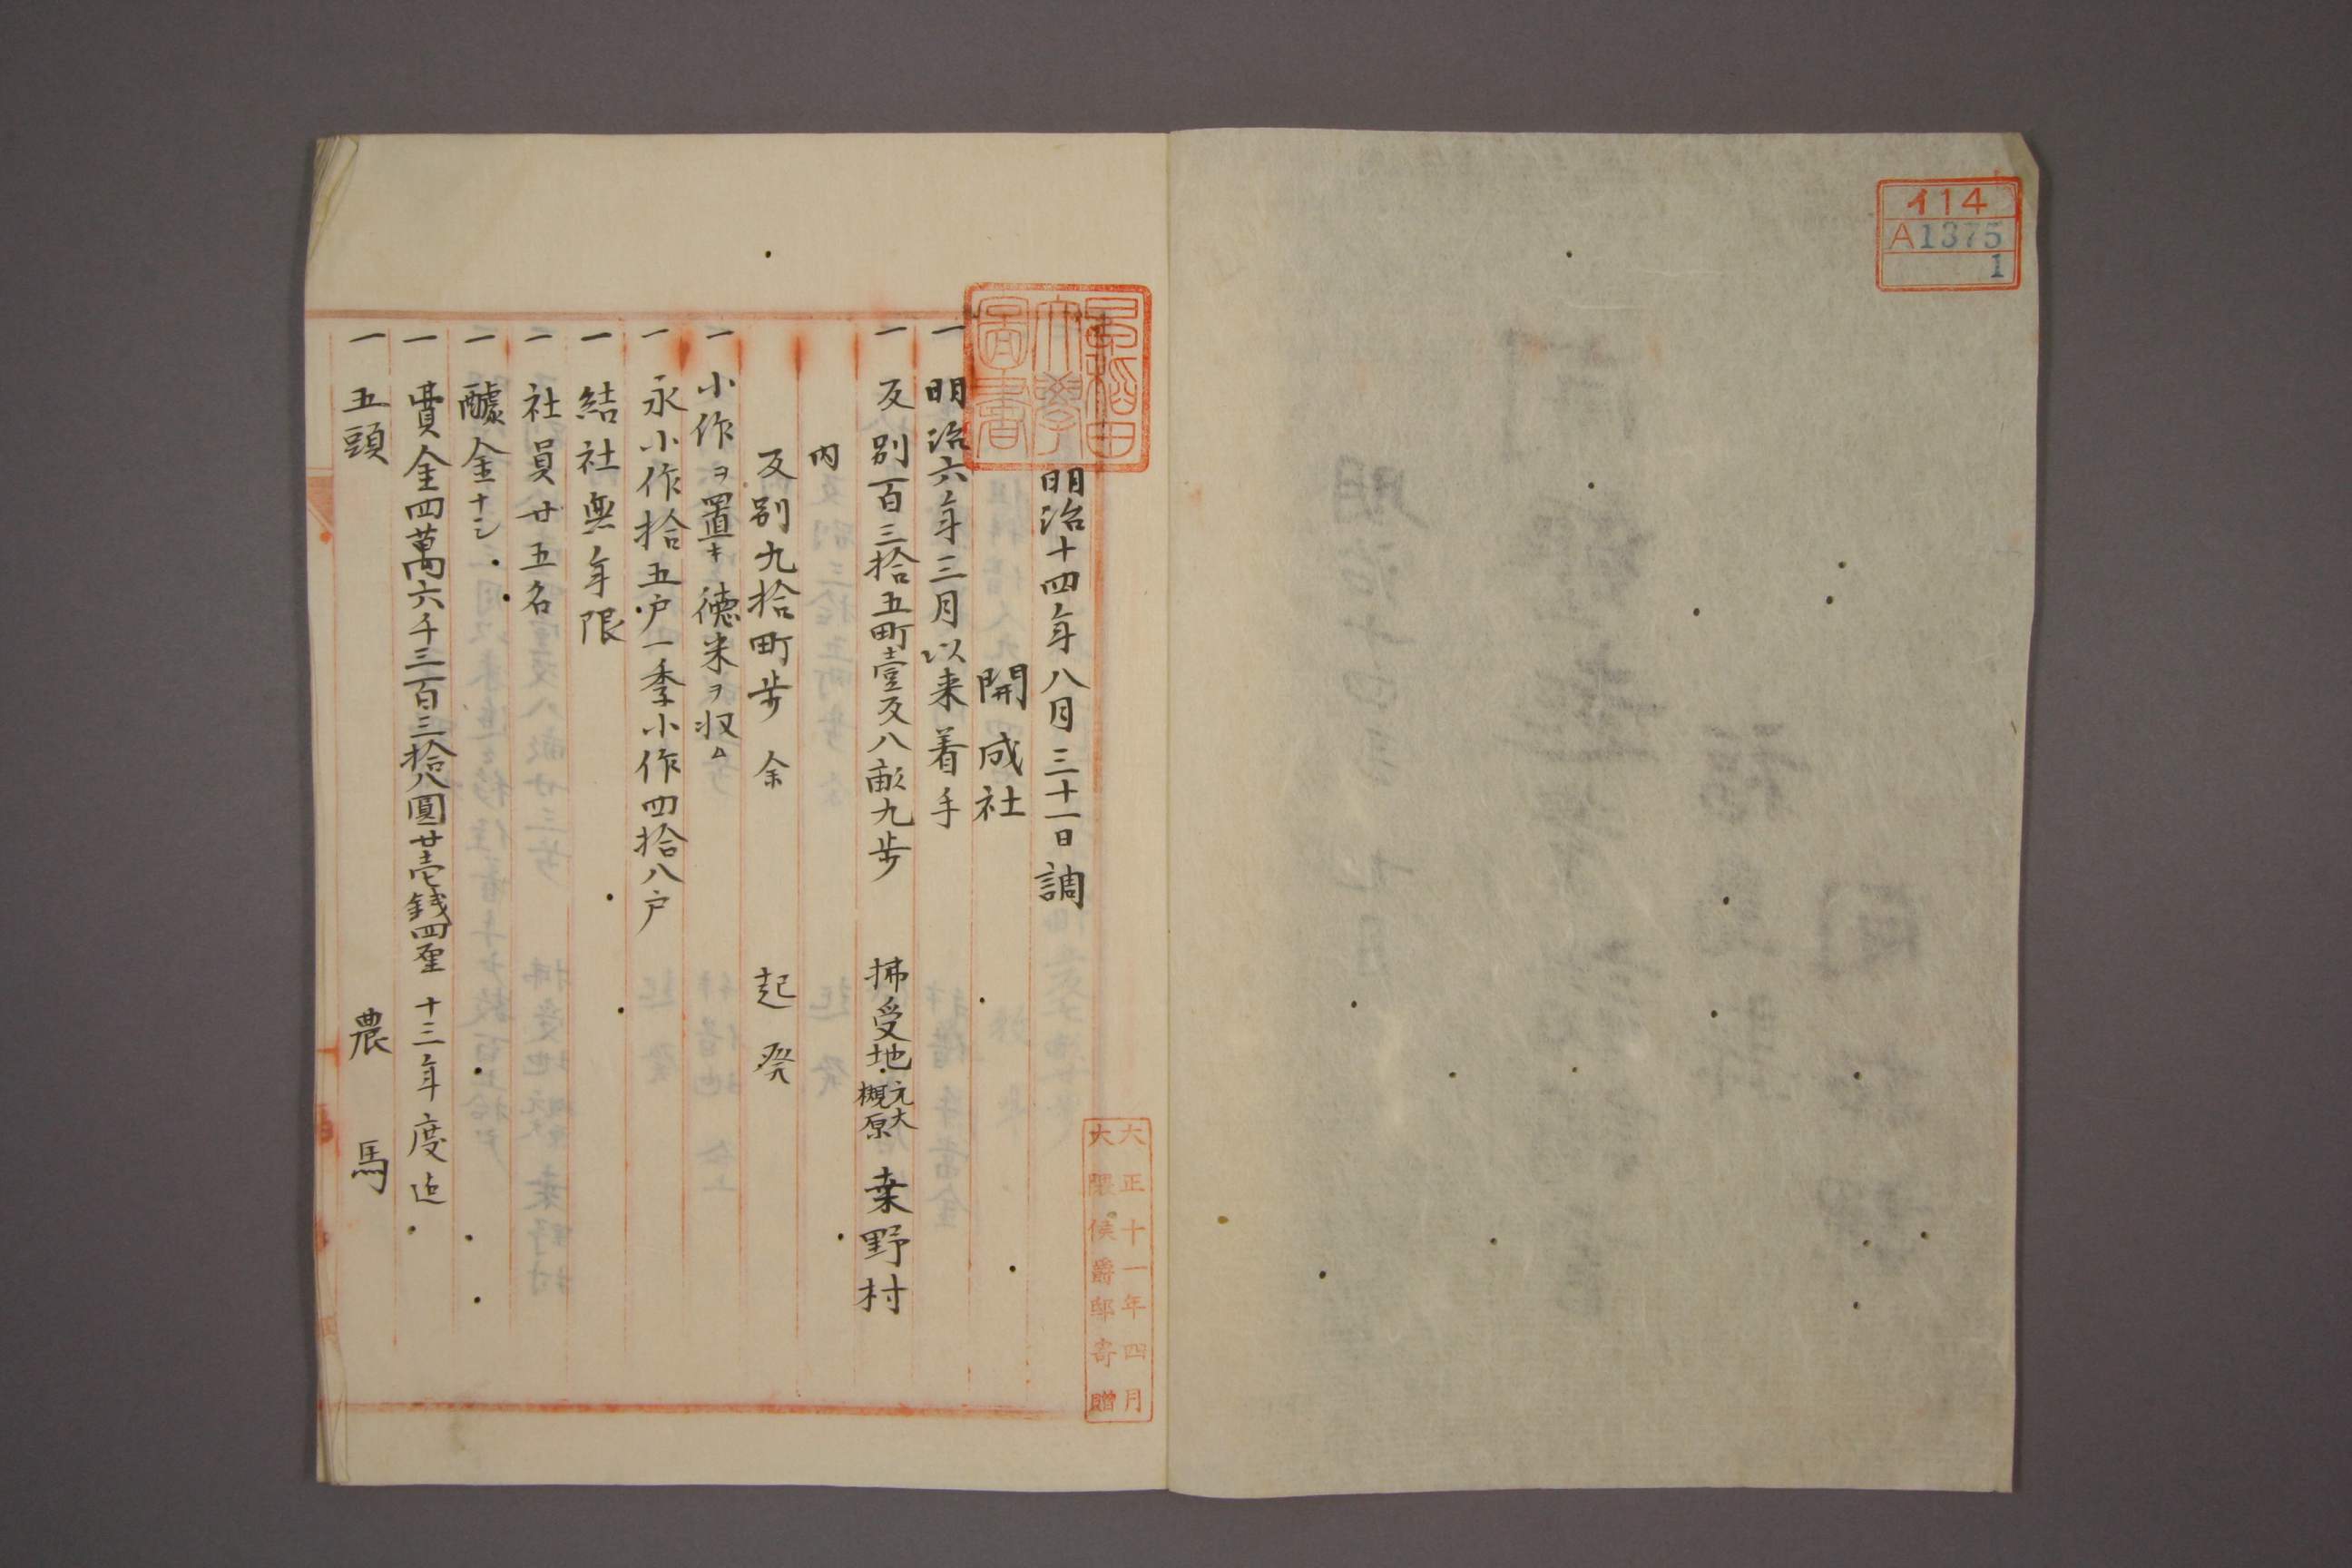 イ14
A1375
1
早稲田
大學
圖書
大正十一年四月
大隈侯爵邸寄贈
明治十四年八月三十一日調
開成社
一 明治六年三月以来着手
一 反別百三拾五町壹反八畝九歩 拂受地 元大槻原 桒野村
内
反別九拾町歩余 起発
一 小作ヲ置キ徳米ヲ収ム
一 永小作拾五户一季小作四拾八户
一 結社無年限
一 社員廿五名
一 醵金ナシ
一 費金四萬六千三百三拾八圓廿壱錢四厘 十三年度迠
一 五頭 農馬